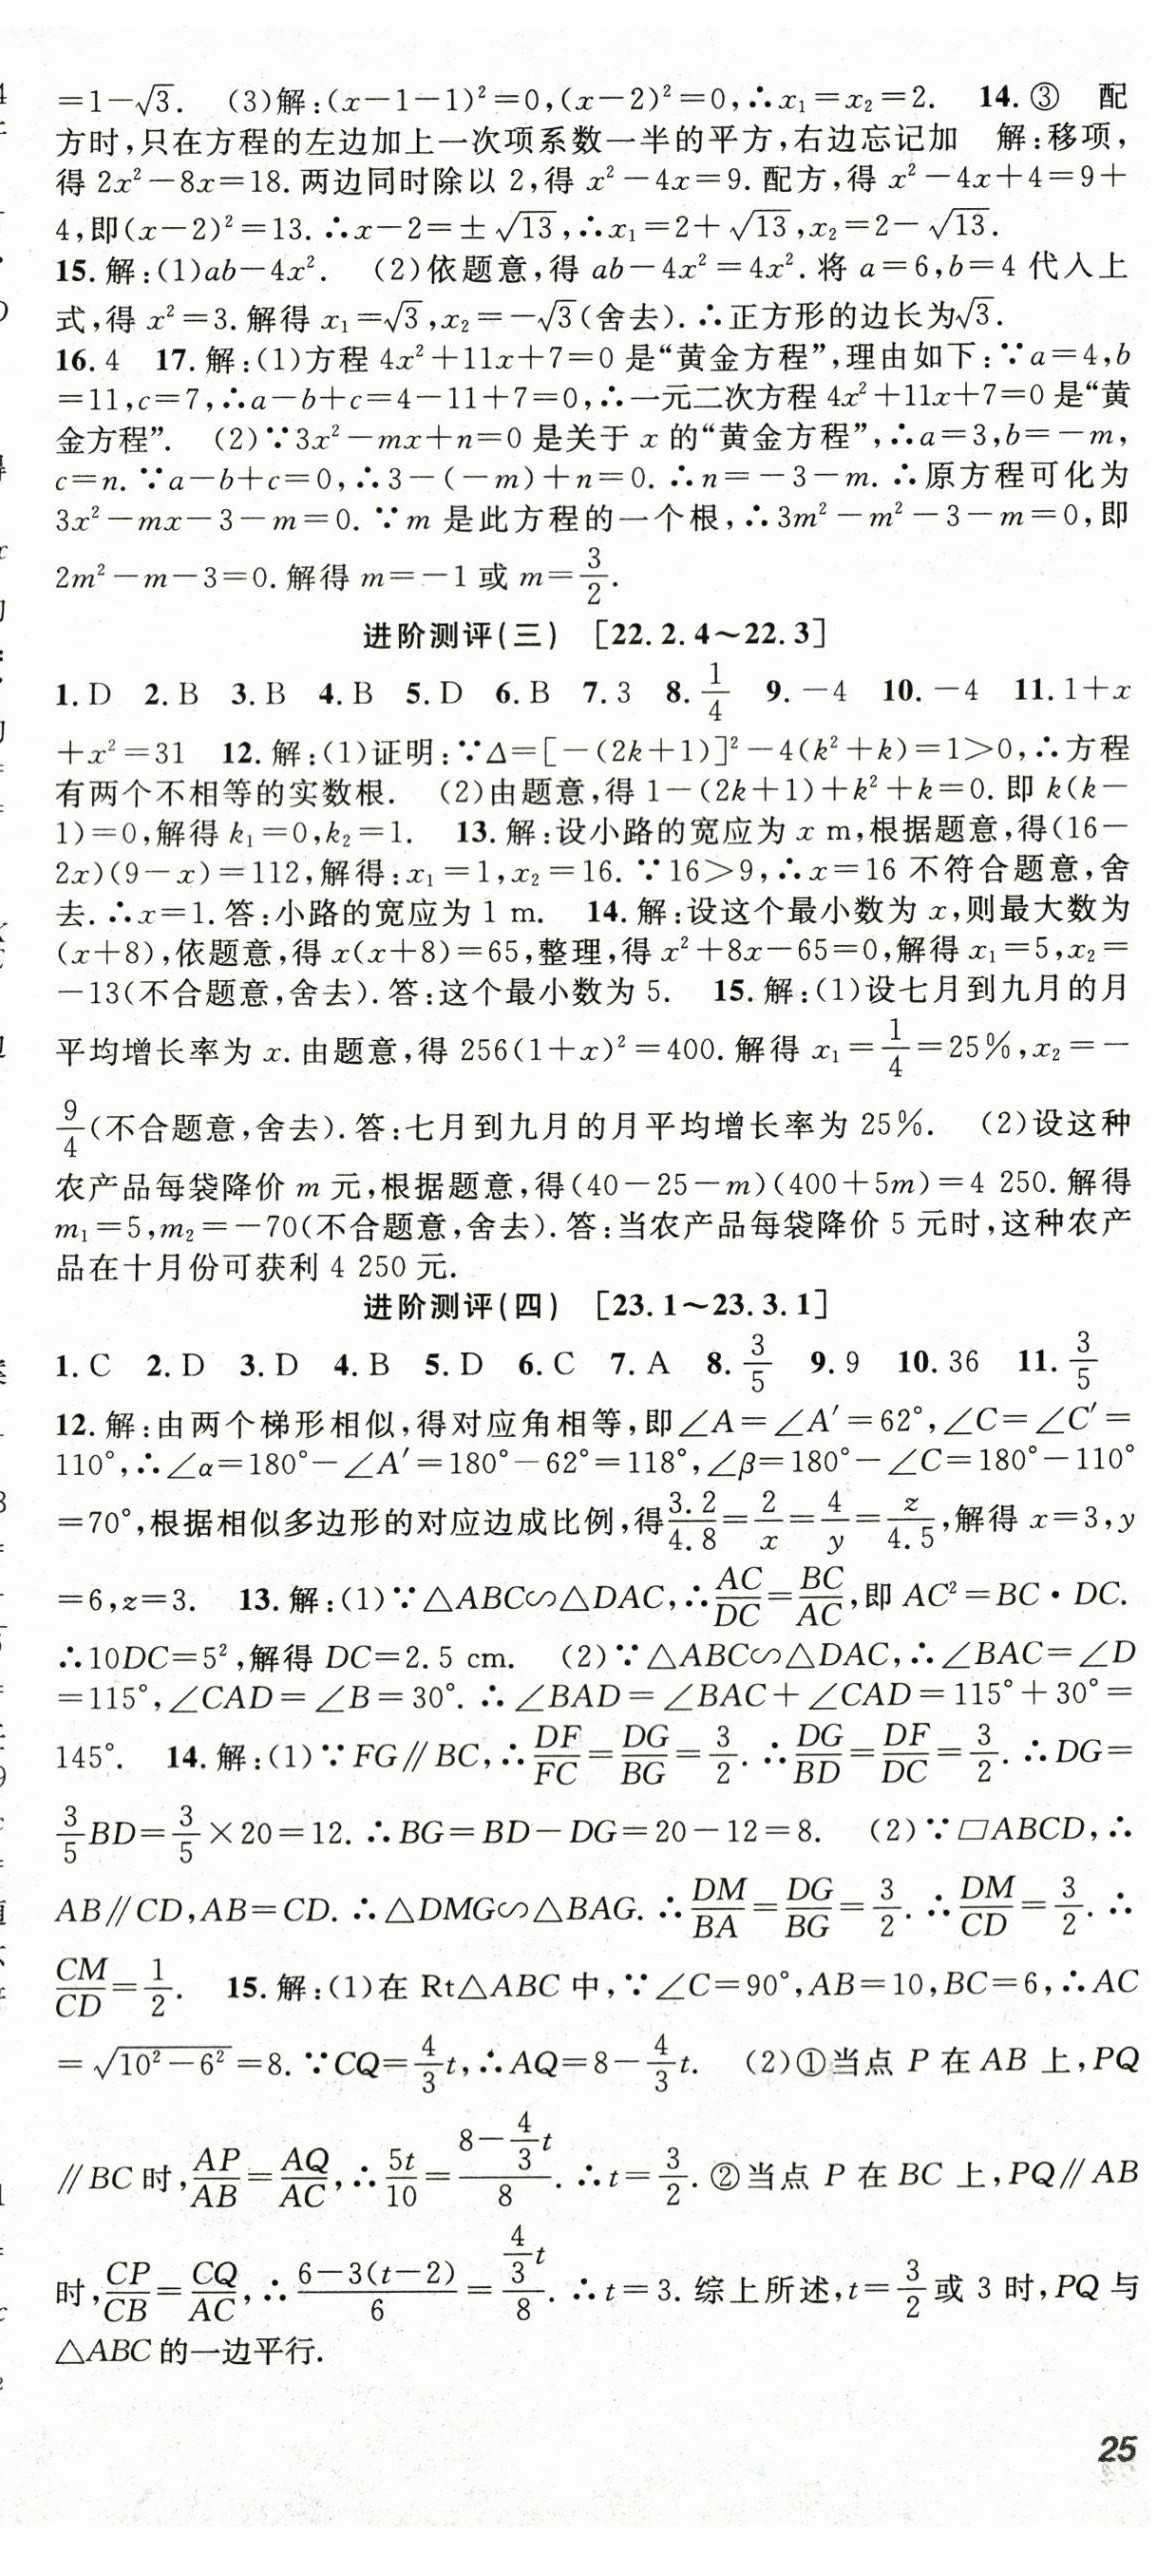 =1-√3. (3)解:(x-1-1)²=0,(x-2)²=0,∴x₁=x₂=2. 14.③ 配
方时,只在方程的左边加上一次项系数一半的平方,右边忘记加 解:移项,
得 2x²-8x=18.两边同时除以 2,得 x²-4x=9.配方,得 x²-4x+4=9+
4,即(x-2)²=13.∴x-2=±√13,∴x₁=2+√13,x₂=2-√13.
15.解:(1)ab-4x². (2)依题意,得 ab-4x²=4x².将 a=6,b=4 代入上
式,得 x²=3.解得 x₁=√3,x₂=-√3(舍去).∴正方形的边长为√3.
16.4 17.解:(1)方程 4x²+11x+7=0 是“黄金方程”,理由如下:∵a=4,b
=11,c=7,∴a-b+c=4-11+7=0,∴一元二次方程 4x²+11x+7=0 是“黄
金方程”. (2)∵3x²-mx+n=0 是关于 x 的“黄金方程”,∴a=3,b=-m,
c=n.∵a-b+c=0,∴3-(-m)+n=0.∴n=-3-m.∴原方程可化为
3x²-mx-3-m=0.∵m 是此方程的一个根,∴3m²-m²-3-m=0,即
2m²-m-3=0.解得 m=-1 或 m=3/2.
进阶测评(三) [22.2.4~22.3]
1.D 2.B 3.B 4.B 5.D 6.B 7.3 8.1/4 9.-4 10.-4 11.1+x
+x²=31 12.解:(1)证明:∵Δ=[-(2k+1)]²-4(k²+k)=1>0,∴方程
有两个不相等的实数根. (2)由题意,得 1-(2k+1)+k²+k=0.即 k(k-
1)=0,解得 k₁=0,k₂=1. 13.解:设小路的宽应为 x m,根据题意,得(16-
2x)(9-x)=112,解得:x₁=1,x₂=16.∵16>9,∴x=16 不符合题意,舍
去.∴x=1.答:小路的宽应为 1 m. 14.解:设这个最小数为 x,则最大数为
(x+8),依题意,得 x(x+8)=65,整理,得 x²+8x-65=0,解得 x₁=5,x₂=
-13(不合题意,舍去).答:这个最小数为 5. 15.解:(1)设七月到九月的月
平均增长率为 x.由题意,得 256(1+x)²=400.解得 x₁=1/4=25%,x₂=-
9/4(不合题意,舍去).答:七月到九月的月平均增长率为 25%. (2)设这种
农产品每袋降价 m 元,根据题意,得(40-25-m)(400+5m)=4 250.解得
m₁=5,m₂=-70(不合题意,舍去).答:当农产品每袋降价 5 元时,这种农产
品在十月份可获利 4 250 元.
进阶测评(四) [23.1~23.3.1]
1.C 2.D 3.D 4.B 5.D 6.C 7.A 8.3/5 9.9 10.36 11.3/5
12.解:由两个梯形相似,得对应角相等,即∠A=∠A′=62°,∠C=∠C′=
110°,∴∠α=180°-∠A′=180°-62°=118°,∠β=180°-∠C=180°-110°
=70°,根据相似多边形的对应边成比例,得3.2/4.8=2/x=4/y=z/4.5,解得 x=3,y
=6,z=3. 13.解:(1)∵△ABC∽△DAC,∴AC/DC=BC/AC,即 AC²=BC·DC.
∴10DC=5²,解得 DC=2.5 cm. (2)∵△ABC∽△DAC,∴∠BAC=∠D
=115°,∠CAD=∠B=30°.∴∠BAD=∠BAC+∠CAD=115°+30°=
145°. 14.解:(1)∵FG∥BC,∴DF/FC=DG/BG=3/2.∴DG/BD=DF/DC=3/2.∴DG=
3/5BD=3/5×20=12.∴BG=BD-DG=20-12=8. (2)∵▱ABCD,∴
AB∥CD,AB=CD.∴△DMG∽△BAG.∴DM/BA=DG/BG=3/2.∴DM/CD=3/2.∴
CM/CD=1/2. 15.解:(1)在 Rt△ABC 中,∵∠C=90°,AB=10,BC=6,∴AC
=√(10²-6²)=8.∵CQ=4/3t,∴AQ=8-4/3t. (2)①当点 P 在 AB 上,PQ
∥BC 时,AP/AB=AQ/AC,∴5t/10=(8-4/3t)/8.∴t=3/2.②当点 P 在 BC 上,PQ∥AB
时,CP/CB=CQ/AC,∴(6-3(t-2))/6=(4/3t)/8.∴t=3.综上所述,t=3/2或 3 时,PQ 与
△ABC 的一边平行.
25